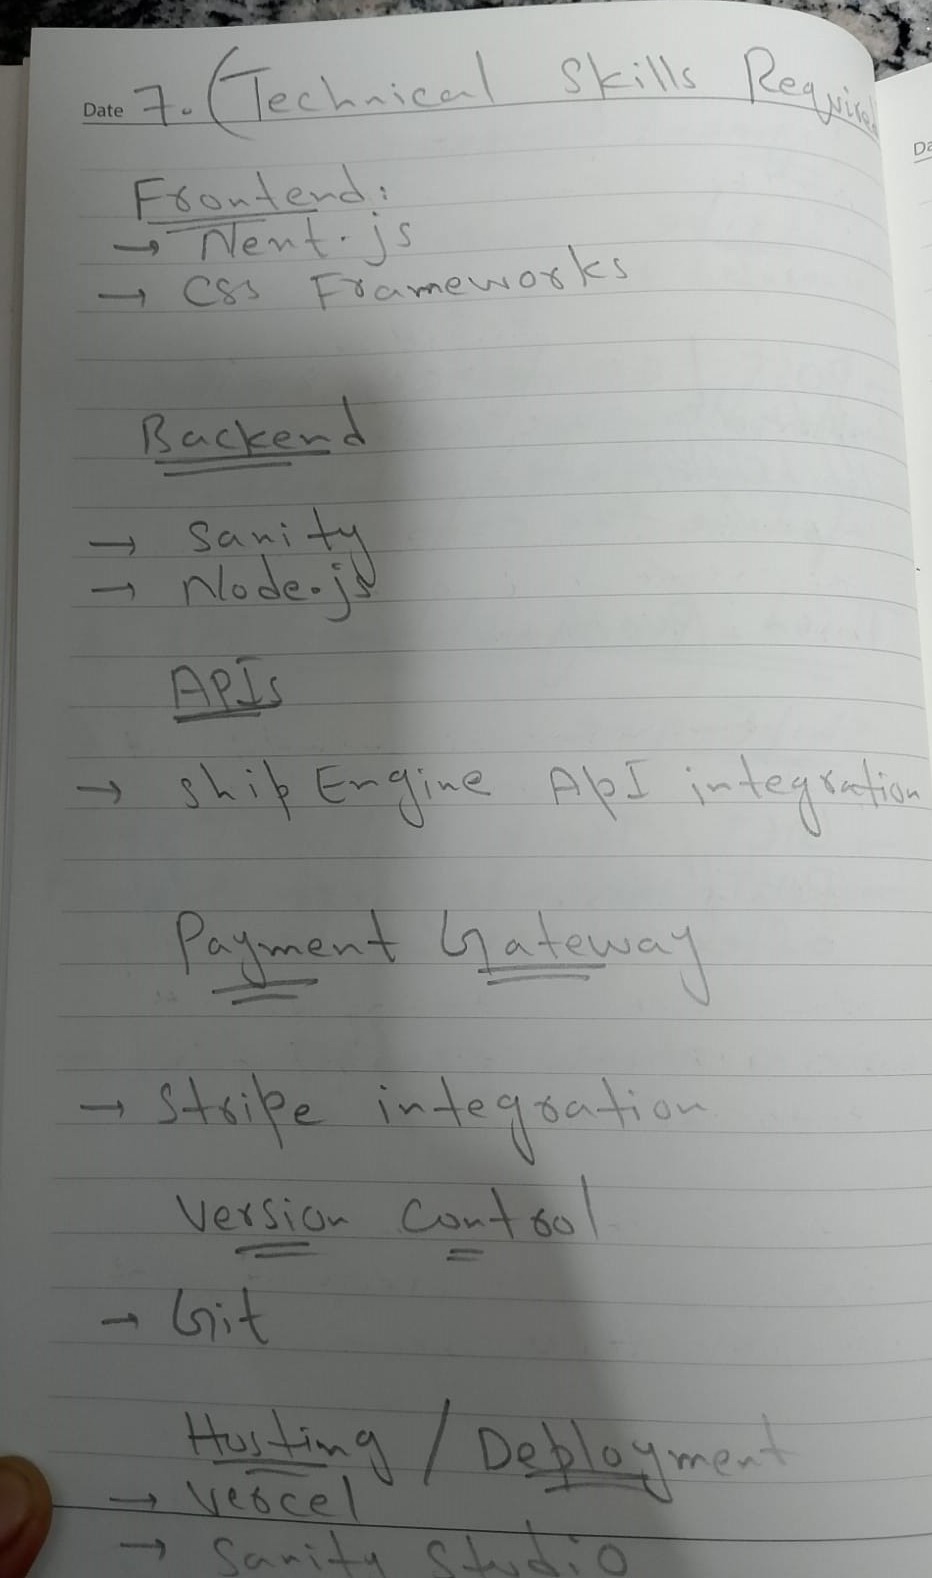 Date 7. (Technical Skills Required
Frontend:
→ Next.js
→ CSS Frameworks
Backend
→ Sanity
→ Node.js
APIs
→ ship Engine API integration
Payment Gateway
→ Stripe integration
Version Control
→ Git
Hosting / Deployment
→ Vercel
→ Sanity Studio